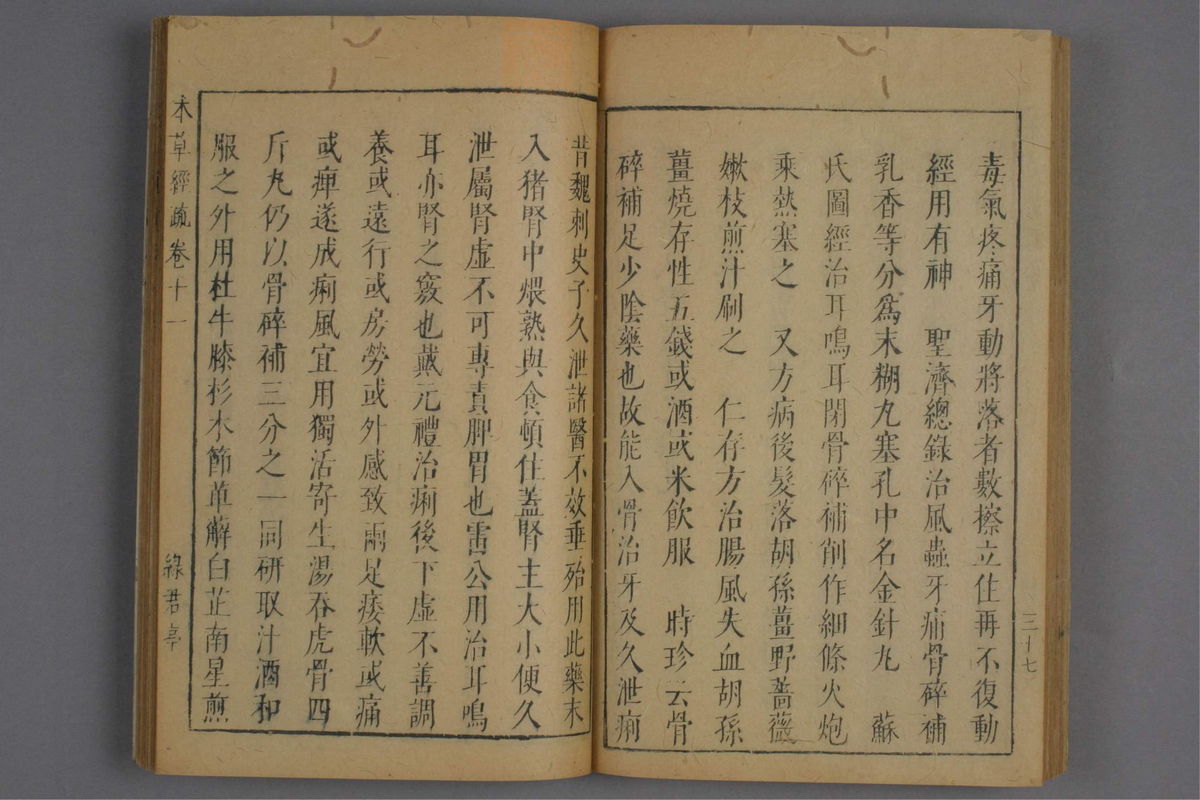 毒氣疼痛牙動將落者數擦立住再不復動
經用有神　聖濟總錄治風蟲牙痛骨碎補
乳香等分爲末糊丸塞孔中名金針丸　蘇
氏圖經治耳鳴耳閉骨碎補削作細條火炮
乘熱塞之　又方病後髮落胡孫薑野薔薇
嫰枝煎汁刷之　仁存方治腸風失血胡孫
薑燒存性五錢或酒或米飲服　時珍云骨
碎補足少陰藥也故能入骨治牙及久泄痢
三十七
昔魏刺史子久泄諸醫不效垂殆用此藥末
入猪腎中煨熟與食頓住蓋腎主大小便久
泄屬腎虛不可專責脾胃也雷公用治耳鳴
耳亦腎之竅也戴元禮治痢後下虛不善調
養或遠行或房勞或外感致兩足痿軟或痛
或痺遂成痢風宜用獨活寄生湯吞虎骨四
斤丸仍以骨碎補三分之一同研取汁酒和
服之外用杜牛膝杉木節萆薢白芷南星煎
本草經疏卷十一
綠君亭